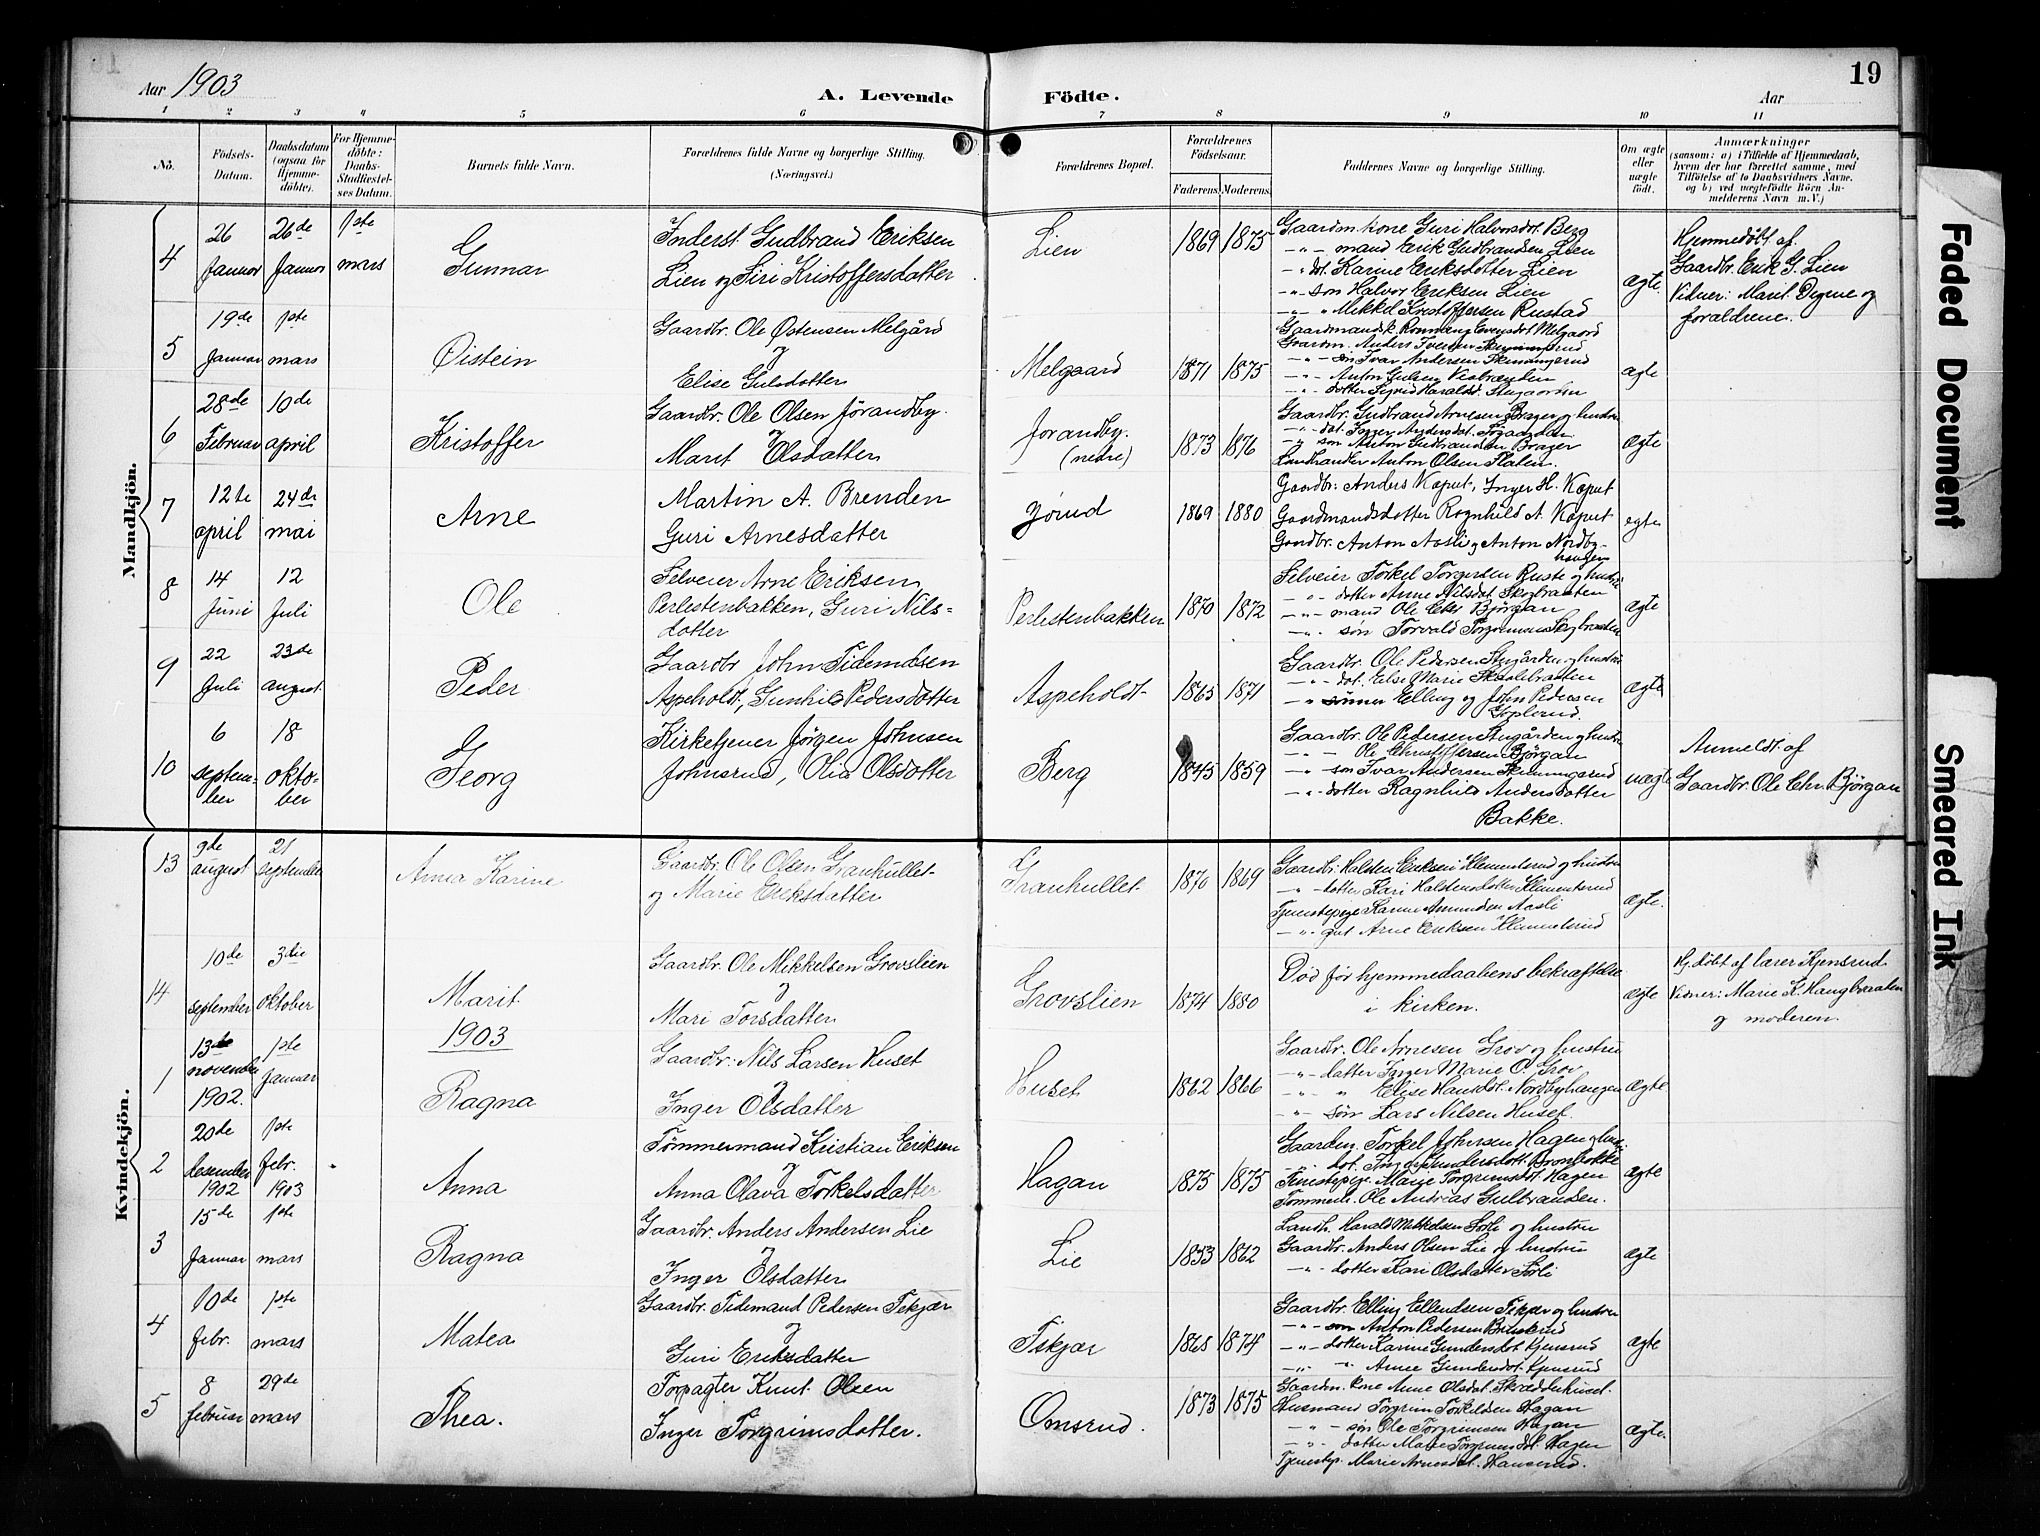 19
Aar 1903
A. Levende Födte.
Aar
1 2 3 4 5 6 7 8 9 10 11
No.
Födsels-Datum.
Daabsdatum (ogsaa for Hjemme-döbte).
For Hjemme-döbte: Daabs-Stadfæstel-ses Datum.
Barnets fulde Navn.
Forældrenes fulde Navne og borgerlige Stilling. (Næringsvei.)
Forældrenes Bopæl.
Forældrenes Födselsaar.
Faderens. Moderens.
Faddernes Navne og borgerlige Stilling.
Om ægte eller uægte födt.
Anmærkninger
(saasom: a) i Tilfælde af Hjemmedaab, hvem der har forrettet samme, med Tilföielse af to Daabsvidners Navne, og b) ved uægtefödte Börn An-melderens Navn m.V.)
Mandkjön.
4
26 Januar
26de Januar
1ste mars
Gunnar
Inderst Gudbrand Eriksen
Lien og Siri Kristoffersdatter
Lien
1869 1875
Gaardm. kone Guri Halvorsdt. Berg
-"- mand Erik Gudbrandsen Lien
-"- dot. Karine Eriksdotter Lien
-"- søn Halvor Eriksen Lien
-"- " Mikkel Kristoffersen Rustad
ægte.
Hjemmedøbt af
Gaardbr. Erik G. Lien
Vidner: Marit Digrne og
foraldrene.
5
19de Januar
1ste mars
Øistein
Gaardbr. Ole Østensen Melgård
og
Elise Gulsdatter
Melgaard
1871 1875
Gaardm. Anders Iversen
-"- søn Ivar Andersen
-"- Anton Gulsen
-"- dotter Sigrid Haraldsd.
ægte
6
28de Februar
10de april
Kristoffer
Gaardbr. Ole Olsen Jørandby
og
Marit Olsdatter
Jørandby. (nedre)
1873 1876
Gaardbr. Gudbrand Arnesen Brager og hustru
-"- dot. Inger Andersdot.
-"- søn Anton Gudbrandsen Brager
Landhandler Anton Olsen Flaten.
ægte
7
12te april
24de mai
Arne
Martin A. Brenden
Guri Arnesdatter
Jørud
1869 1880
Gaardbr. Anders Kaput, Inger H. Kaput
Gaardmandsdotter Ragnhild A. Kaput
Gaardbr. Anton Aasli og Anton Nordby-
haugen
ægte
8
14 Juni
12 Juli
Ole
Selveier Arne Eriksen
Perlestenbakken, Guri Nils-
dotter
Perlestenbakken
1870 1872
Selveier Torkel Torgersen Ruste og hustru
-"- dotter Anne Nilsdot. Skogbraaten
-"- mand Ole Chr. Bjørgan
-"- søn Torvald Torgrimsen Skogbraaten
ægte
9
22 Juli
23de august
Peder
Gaardbr. John Tidemdsen
Aspeholdt, Gunhild Pedersdotter
Aspeholdt
1865 1871
Gaardbr. Ole Pedersen Stugården og hustru
-"- dot. Else Marie Skaalebraaten
-"- sønner Elling og John Pedersen
Goplerud.
ægte
10
6 septem-ber
18 okto-ber
Georg
Kirketjener Jørgen Johnsen
Johnsrud, Olia Olsdotter
Berg
1845 1859
Gaardbr. Ole Pedersen Stugården og hustru
-"- Ole Christoffersen Bjørgan
-"- søn Ivar Andersen
-"- dotter Ragnhild Andersdotter
Bakke.
uægte
Anmeldt af
Gaardbr. Ole Chr. Bjørgan
Kvindekjön.
13
9de august
21 september
Anna Karine
Gaardbr. Ole Olsen Granhullet
og Marie Eriksdatter
Granhullet
1870 1869
Gaardbr. Halsten Eriksen Klemmetsrud og hustru
-"- dotter Kari Halstensdotter Klemmetsrud
Tjenestepige Karine Amundsen Aasli
-"- gut Arne Eriksen Klemmetsrud
ægte.
14
10de september
3die oktober
Marit
Gaardbr. Ole Mikkelsen Grovslien
og
Mari Torsdatter
Grovslien
1874 1880
Død før hjemmedaabens bekræftelse
i kirken.
ægte
Hj. døbt af lærer Kjensrud.
Vidner: Marie K. Haugbraaten
og moderen.
1903
1
13de november 1902.
1ste Januar
Ragna
Gaardbr. Nils Larsen Huset
og
Inger Olsdatter
Huset
1862 1866
Gaardbr. Ole Arnesen Grov og hustru
-"- datter Inger Marie O. Grov
-"- " Elise Hansdt. Nordbyhaugen
-"- søn Lars Nilsen Huset.
ægte
2
20de desember 1902
1ste febr. 1903
Anna
Tømmermand Kristian Eriksen
og
Anna Olava Torkelsdatter
Hagan
1875 1875
Torkel Johnsen Hagen og hus.
-"- dot. Inger Gundersdott. Bronbakke
Tjenestepige Marie Torgrimsdot. Hagen
Tømmerm. Ole Andreas Gulbrandsen.
ægte
3
15de Januar
1ste mars
Ragna
Gaardbr. Anders Andersen Lie
og
Inger Olsdatter
Lie
1853 1862
Landh. Harald Mikkelsen Sørli og hustru
Gaardbr. Anders Olsen Lie og hustru
-"- dotter Kari Olsdatter Sørli
ægte
4
10de febr.
1ste mars
Matea
Gaardbr. Tidemand Pedersen Fiskjær
og
Guri Eriksdatter
Fiskjær
1868 1874
Gaardbr. Elling Ellendsen Fiskjær og hustru
-"- søn Anton Pedersen
-"- dotter Karine Gundersdot. Kjensrud
-"- " Anne Gundersdot. Kjensrud
ægte
5
8 februar
29de mars
Thea.
Forpagter Knut Olsen
Inger Torgrimsdotter.
Omsrud.
1873 1875
Gaardm. kone Anne Olsdot. Skrædderhuset.
Husmand Torgrim Torkeldsen Hagan
-"- søn Ole Torgrimsen Hagan
-"- dotter Marie Torgrimsdot. Hagen
Tjenestep. Marie Arnesdot. Hanserud.
ægte.
Faded Document
Smeared Ink